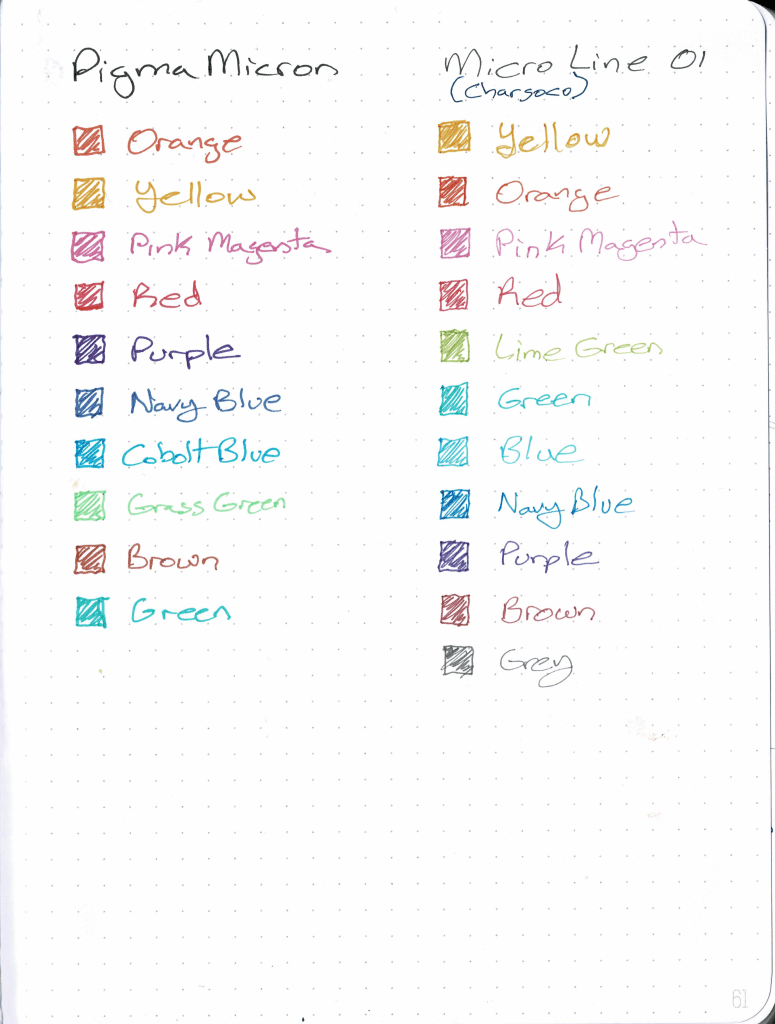 Pigma Micron
Orange
Yellow
Pink Magensta
Red
Purple
Navy Blue
Cobolt Blue
Grass Green
Brown
Green
Micro Line 01
(Charsoco)
Yellow
Orange
Pink Magenta
Red
Lime Green
Green
Blue
Navy Blue
Purple
Brown
Grey
61